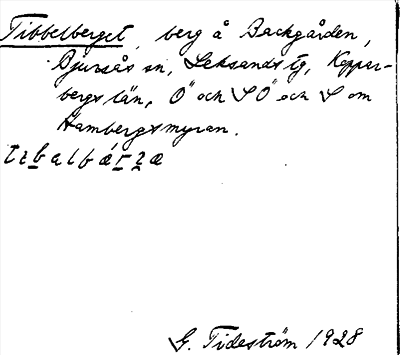 Tibbelberget, berg å Backgården,
Bjursås sn, Leksands tg, Koppar-
bergs län, Ö och SÖ och S om
Hambergsmyran.
G. Tideström 1928